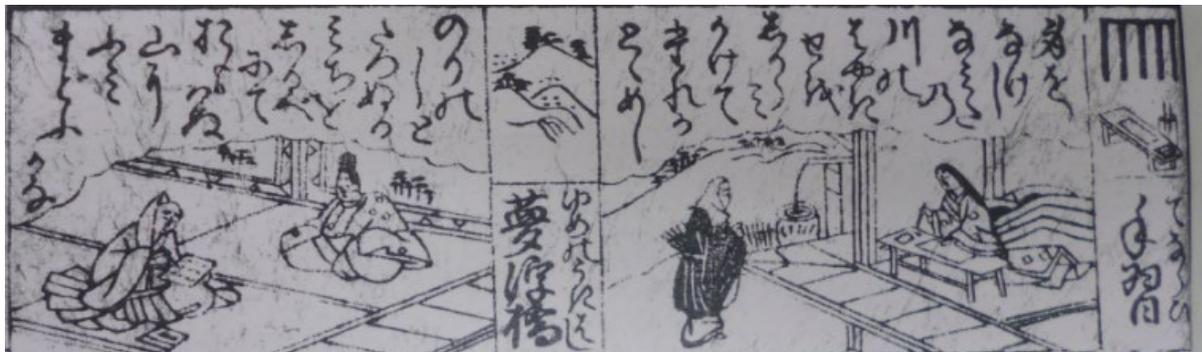 てならひ
手習
身を
なけし
なみた
乃
川の
はやき
せを
しからみ
かけて
たれか
とゝめし
ゆめのうきはし
夢浮橋
のりの
しと
たつぬる
みちを
しるへ
にて
おもはぬ
山に
ふみ
まとふ
かな